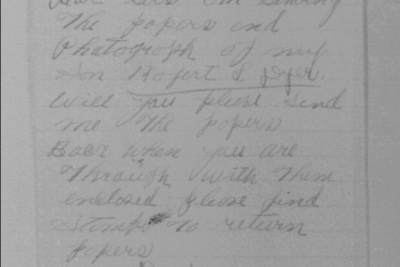 Dear Sirs I'm Sending
The papers and
Photograph of my
Son Robert L Dyer.
will you pleas Send
me The papers
Back when you are
Through with Them
enclosed please find
Stamps to return
papers